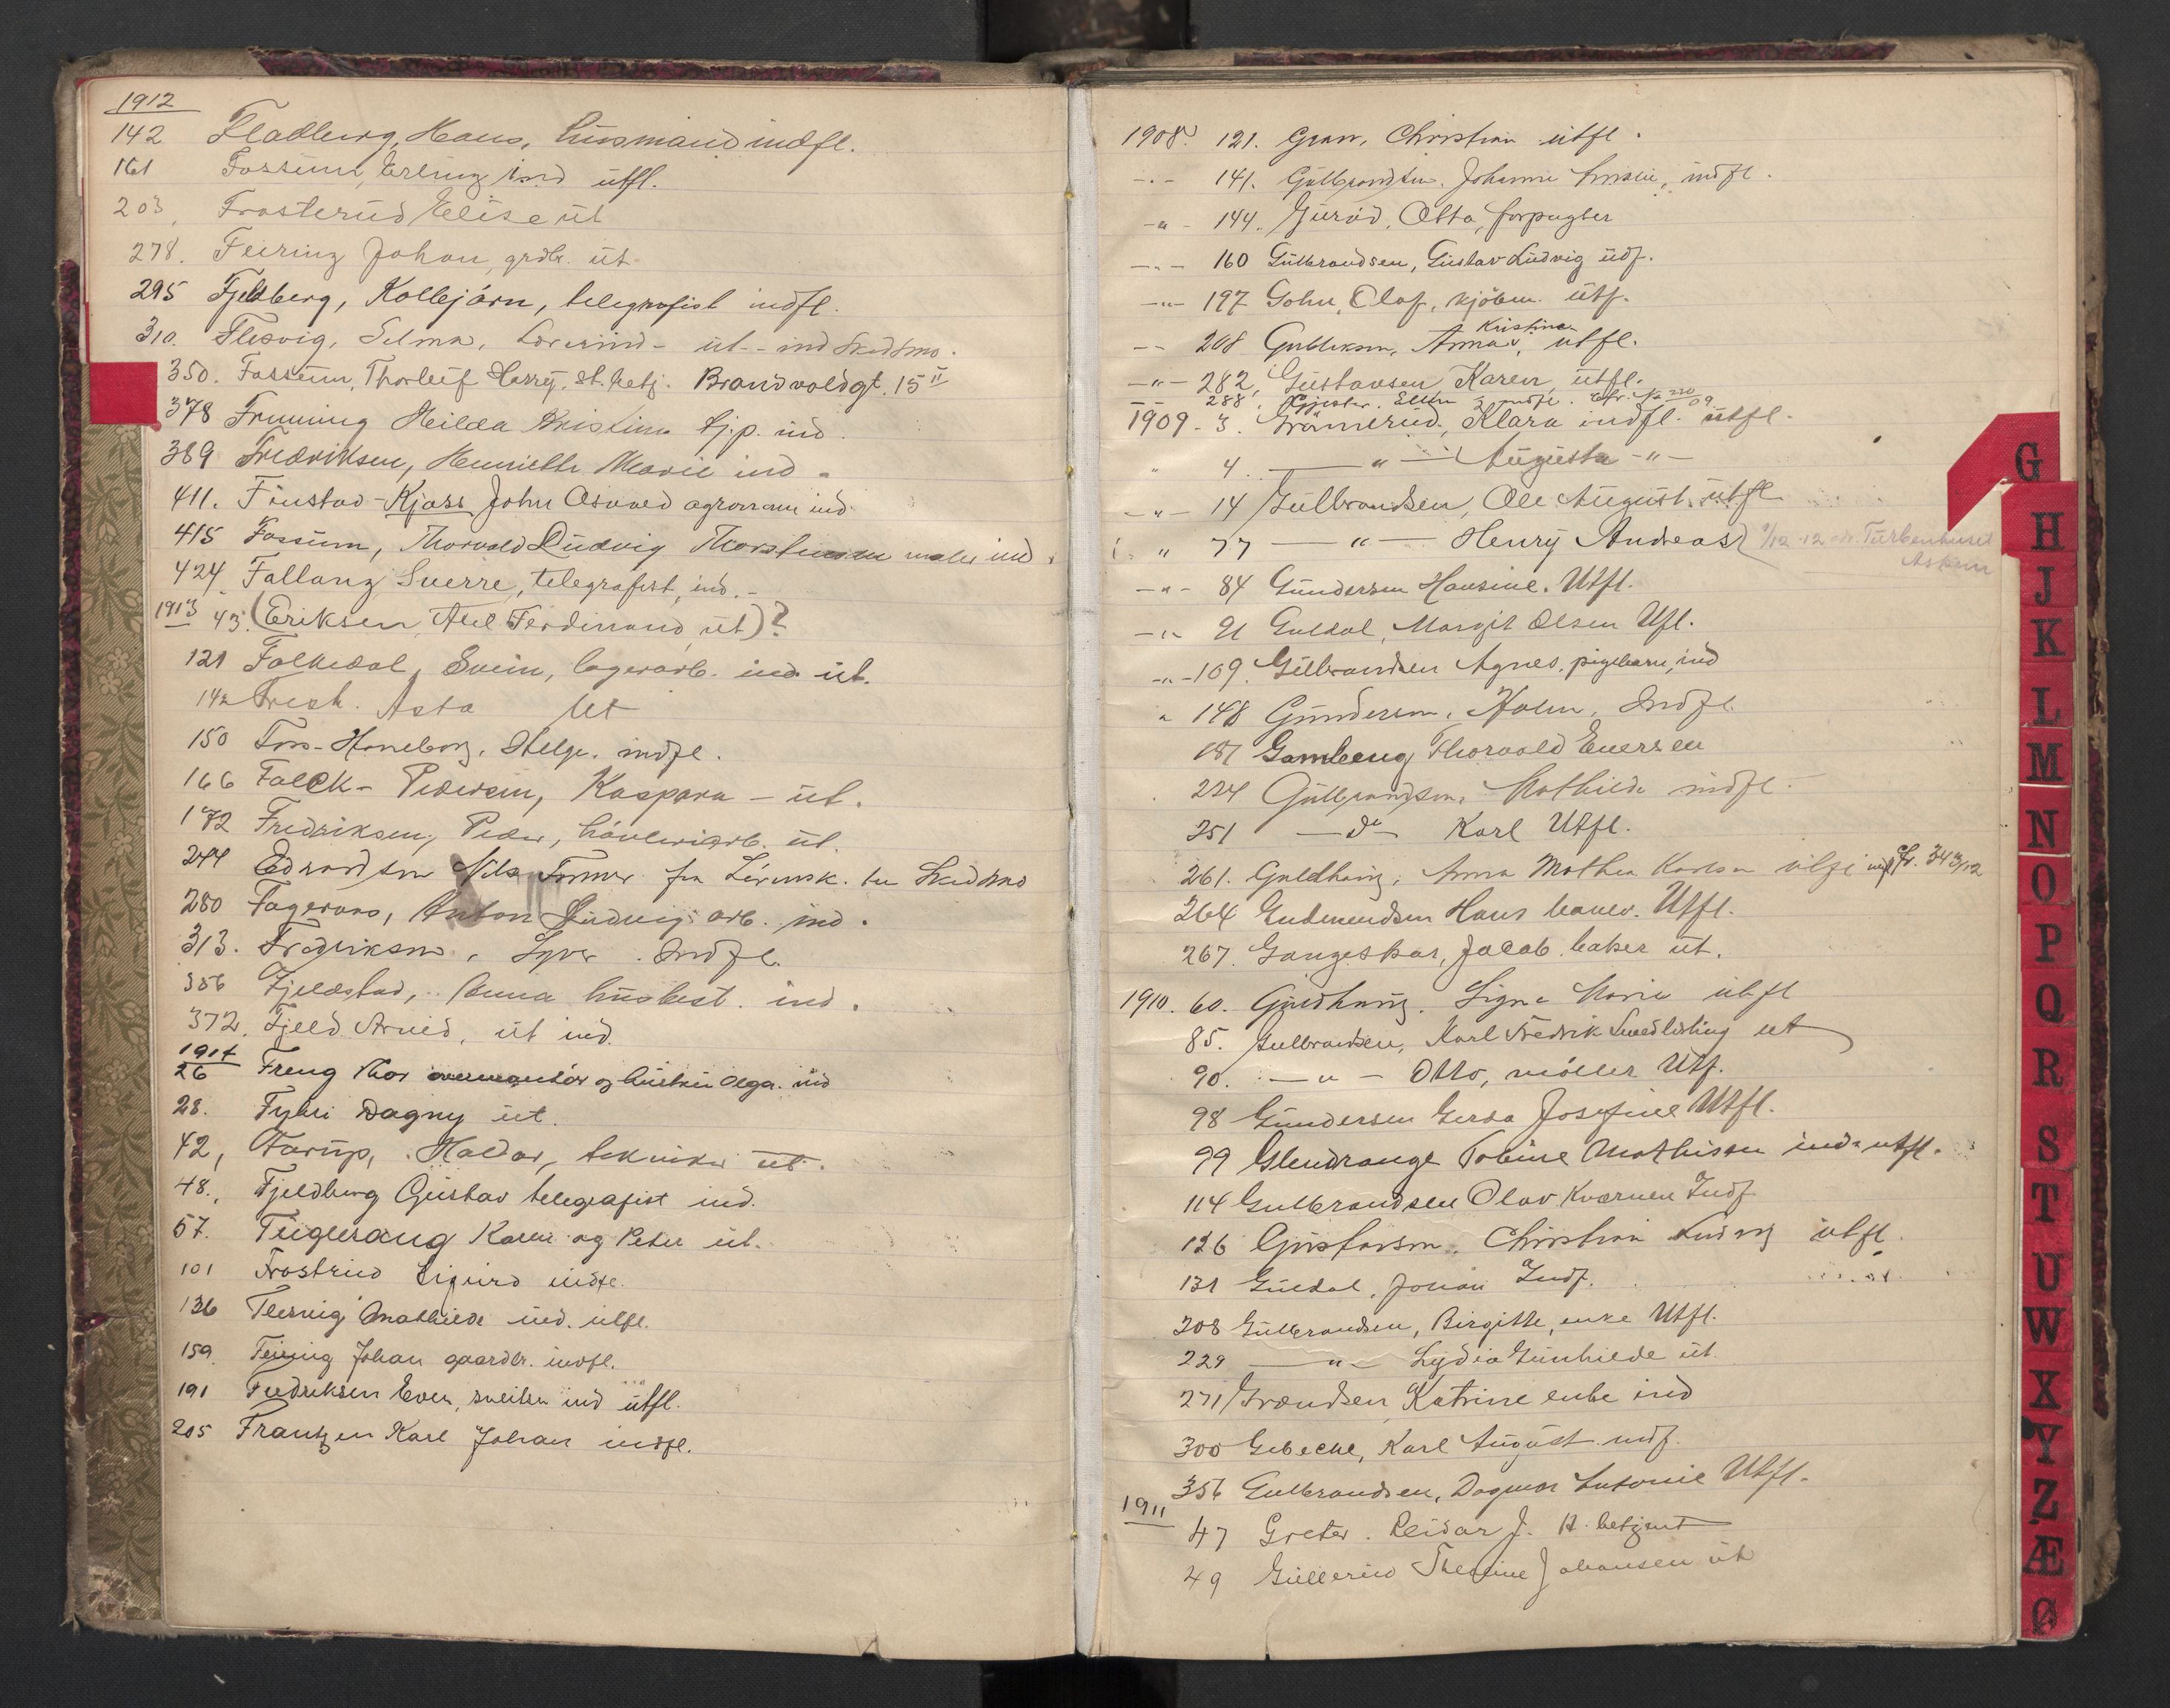 1912
142 Fladberg, Hans, husmand indfl.
161 Fossum, Erling ind utfl.
203, Frosterud Elise ut
278. Feiring Johan, grdbr. ut
295 Fjeldberg, Kolbjörn, telegrafist indfl.
310. Flesvig, Selma, ut - ind Skedsmo.
350. Fossum, Thorleif Harry, st. betj. Brandvoldgt. 15 II
378 Hilda Kristine tj.p. ind.
389 Fredriksen, Henriette Marie ind.
411. Finstad-Kjass John Osvald agronom ind
415 Fossum, Thorvald Ludvig maler ind.
424 Fallang Sverre, telegrafist, ind.
1913 43. (Eriksen, Axel Ferdinand, ut)?
121 Falkedal, Svein, lagerarb. ind ut.
142 Fresk. Asta Ut
150 Foss-Haneborg, Helge. indfl.
166 Falck-Pedersen, Kaspara - ut.
172 Fredriksen, Peder, hövleriarb. ut.
244 Nils fra Lörensk. til Skedsmo
280 Anton Ludvig arb. ind.
313. Fredriksen, Syver. Indfl.
356 Fjeldstad, Anna husbest. ind.
372. Fjeld Arvid, ut ind.
1914
26 Freng Thor og hustru Olga. ind
28. Dagny ut.
42, Farup, Haldor, tekniker ut.
48., Fjeldberg Gustav telegrafist ind.
57. Fuglevaag Karen og Peter ut.
101 Frostrud Sigurd indfl.
136 Flesvig Mathilde ind. utfl.
159. Feiring Johan gaardbr. indfl.
191 Fredriksen Even, sveitser ind utfl.
205 Frantzen Karl Johan indfl.
1908. 121. Gran, Christian utfl.
-"- 141. Gulbrandsen. Johanne Amalie, indfl.
-"- 144. Otto, forpagter
-"- 160 Gulbrandsen, Gustav Ludvig udf.
-"- 197 Gohn, Olaf, kjöbm. utf.
-"- 208 Gulliksen, Anna Kristina, utfl.
-"- 282, Gustavsen, Karen, utfl.
288, Ellen indfl. Cfr. No 220/09.
1909 - 3. Grönnerud, Klara indfl. utfl.
" 4. -"- Augusta -"-
-"- 14 Gulbrandsen, Ole August. utfl.
" 77 -"- Henry Andreas 1/12-12
-"- 84 Gundersen Hansine. Utfl.
-"- 91 Guldal, Margit Olsen Utfl.
-"- 109. Gulbrandsen Agnes. pigebarn, ind
" 148 Gundersen, John, Indfl.
187 Gamleng Thorvald Enersen
224 Gulbrandsen, Mathilde indfl.
251 -do- Karl Utfl.
261. Guldhaug, Anna Mathea Karlsen utfl indfl Cfr. 343/12
264 Gudmundsen Hans Utfl.
267. Gangeskar, Jacob. baker ut.
1910. 60. Guldhaug. Signe Marie utfl
85. Gulbrandsen, Karl Fredrik ut
90. -"- Otto, möller Utf.
98 Gundersen Gerda Josefine Utfl.
99 Glendrange Tobine Mathisen ind utfl.
114 Gulbrandsen Olav Kvernen Indf
126 Gustavsen. Christian Ludvig utfl.
131 Guldal, Johan Indf.
208 Gulbrandsen, Birgitte, enke Utfl.
229 -"- Lydia Gunhilde ut.
271 Katrine enke ind
300 Karl August indf.
356 Gulbrandsen, Dagmar Antonie Utfl.
1911
47 Greter. Reidar J. st. betjent
49 Gullerud Johansen ut
G
H
J
K
L
M
N
O
P
Q
R
S
T
U
W
X
Y
Z
Æ
Ø